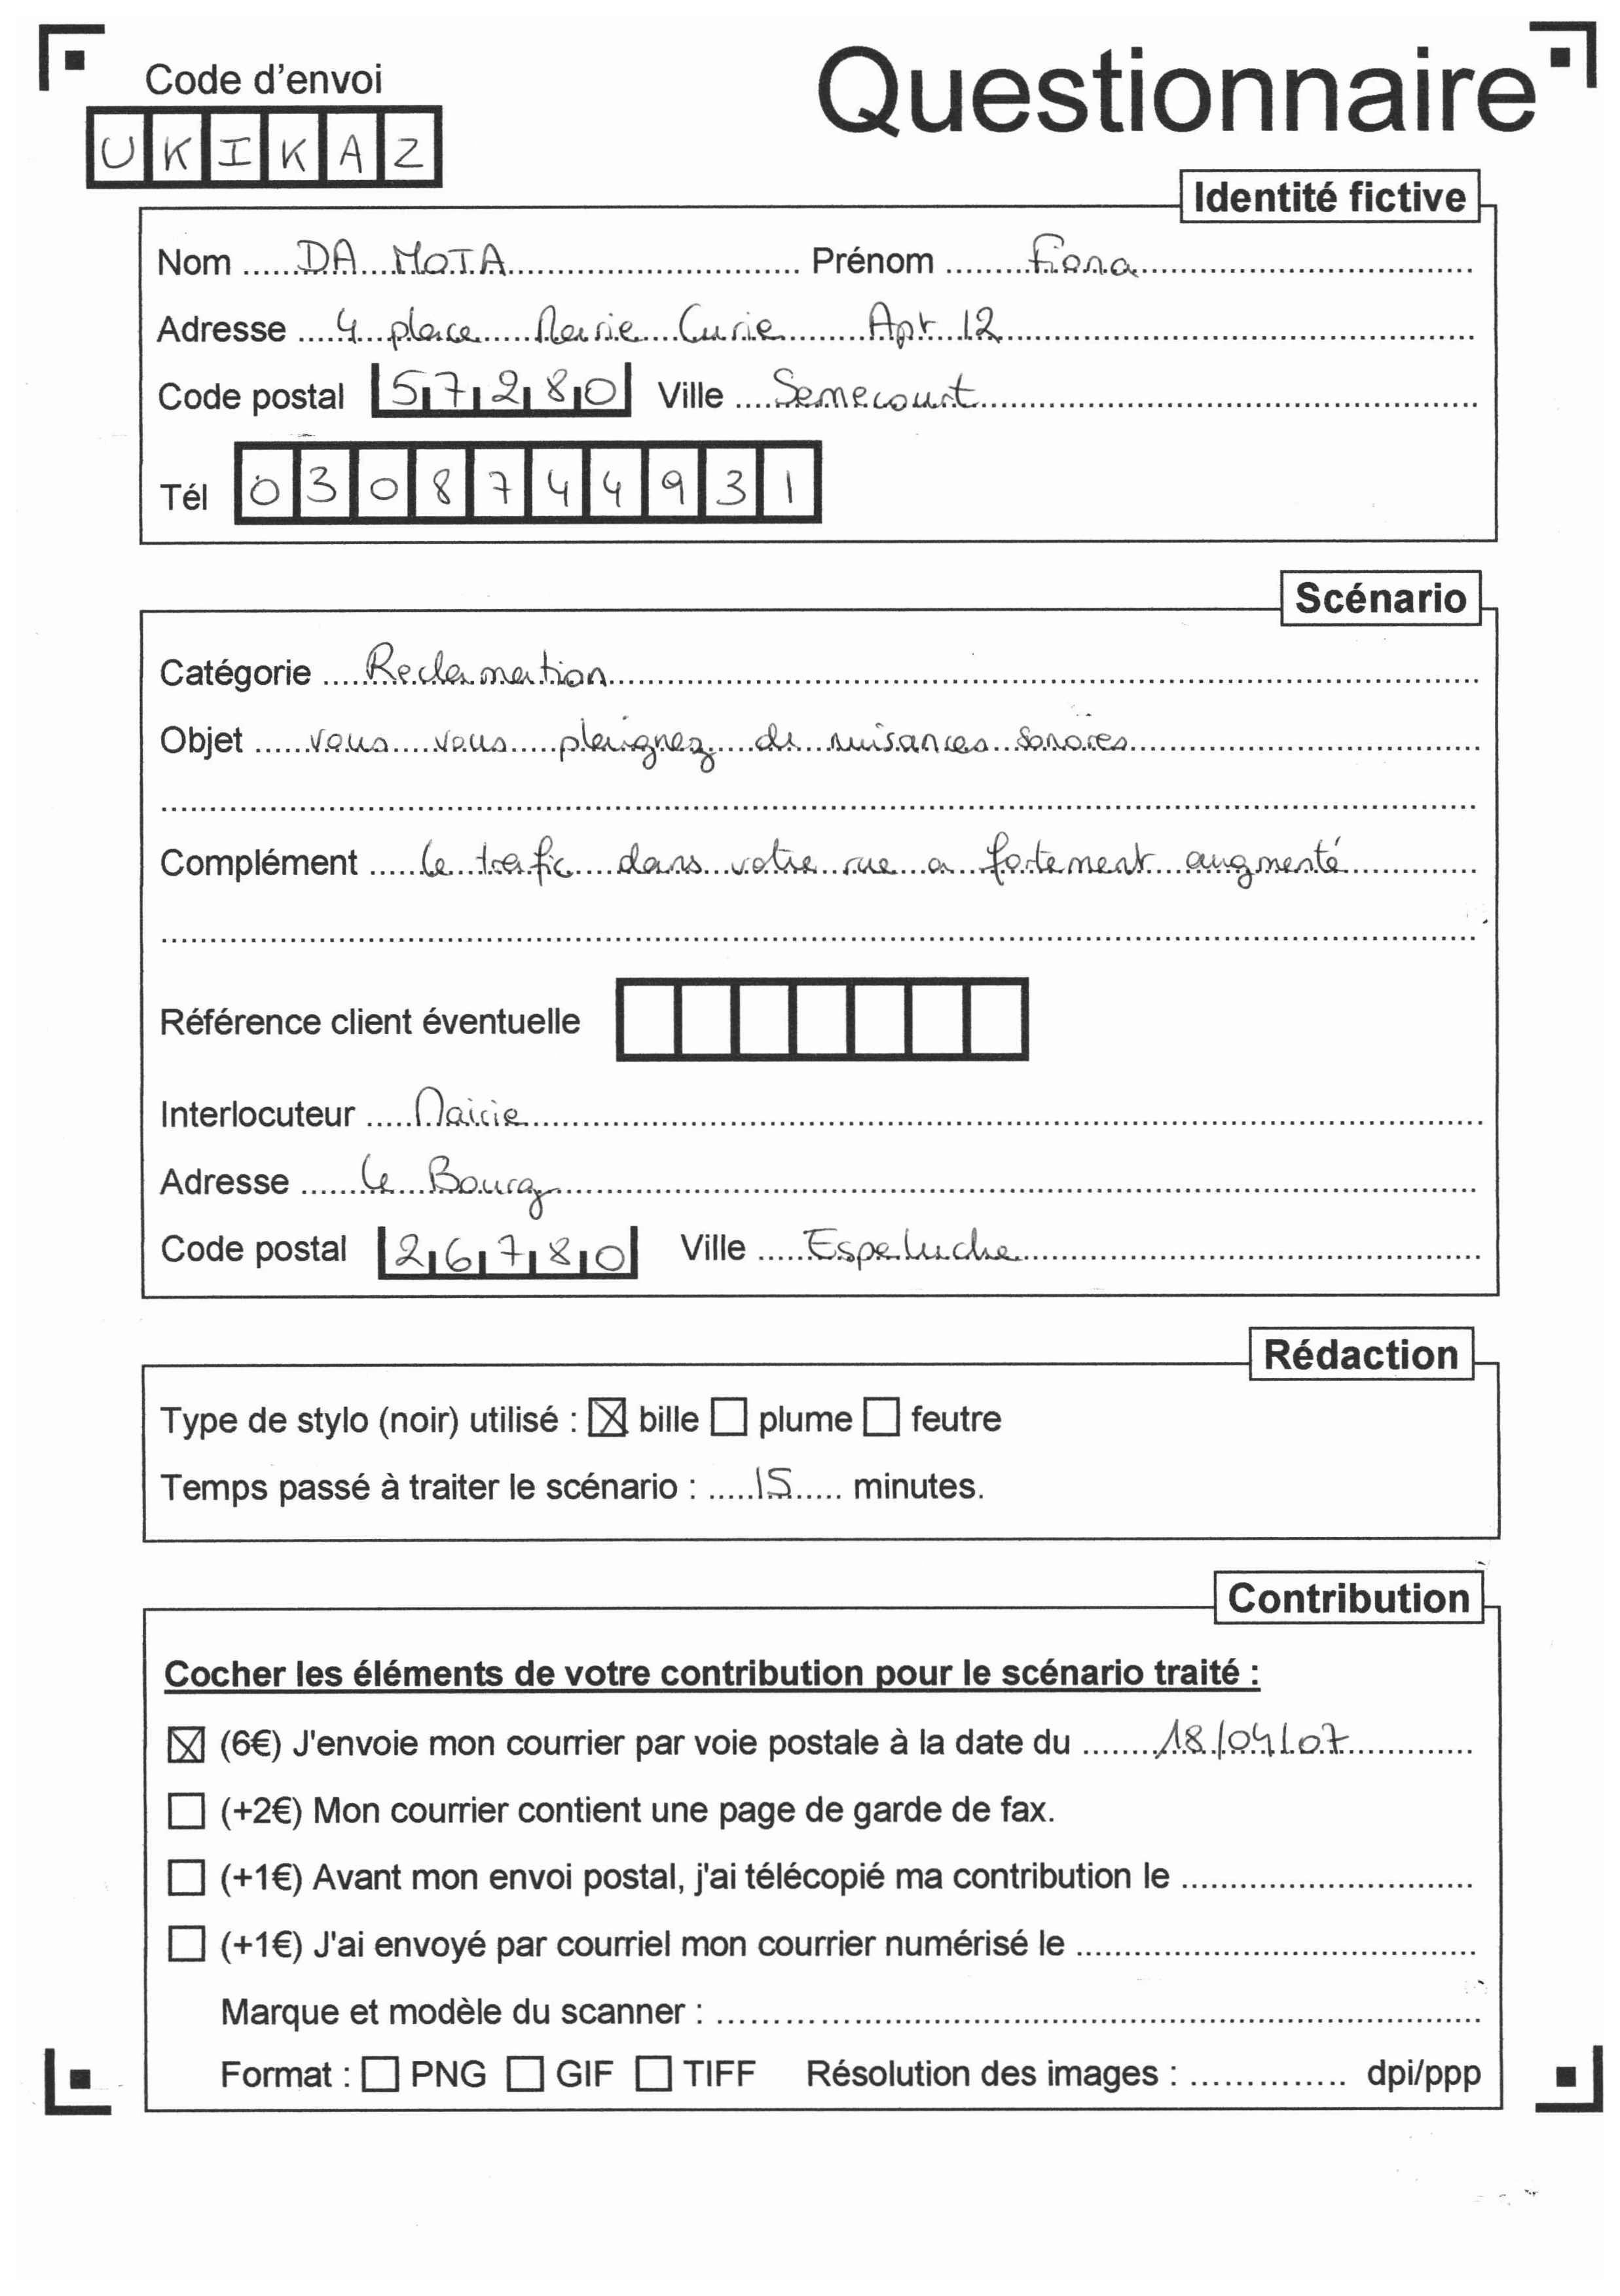 Code d'envoi
Questionnaire
UKIKAZ
Identité fictive
Nom DA MOTA Prénom Fiona
Adresse 4 place Marie Curie Apt 12
Code postal 57280 Ville Semecourt
Tél 0308744931
Scénario
Catégorie Reclamation
Objet vous vous plaignez de nuisances sonores
Complément le trafic dans votre rue a fortement augmenté
Référence client éventuelle
Interlocuteur Mairie
Adresse Le Bourg
Code postal 26780 Ville Espeluche
Rédaction
Type de stylo (noir) utilisé : ☒ bille ☐ plume ☐ feutre
Temps passé à traiter le scénario : 15 minutes.
Contribution
Cocher les éléments de votre contribution pour le scénario traité :
☒ (6€) J'envoie mon courrier par voie postale à la date du 18/04/07
☐ (+2€) Mon courrier contient une page de garde de fax.
☐ (+1€) Avant mon envoi postal, j'ai télécopié ma contribution le
☐ (+1€) J'ai envoyé par courriel mon courrier numérisé le
Marque et modèle du scanner :
Format : ☐ PNG ☐ GIF ☐ TIFF Résolution des images : dpi/ppp